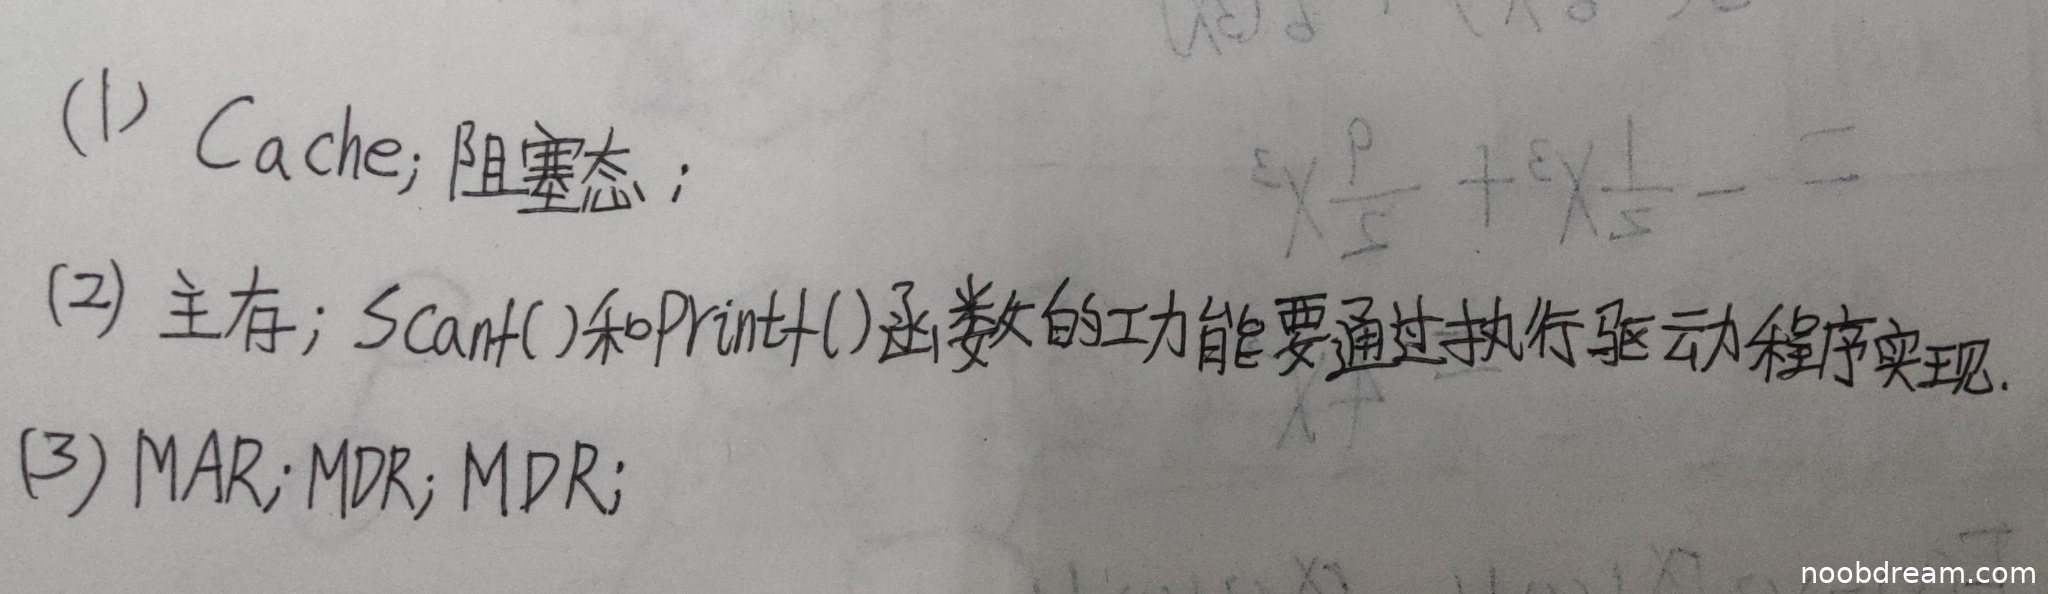 (1) Cache; 阻塞态;
(2) 主存; Scanf()和printf()函数的功能要通过执行驱动程序实现.
(3) MAR; MDR; MDR;
= -1/2 X³ + 9/2 X³
noobdream.com